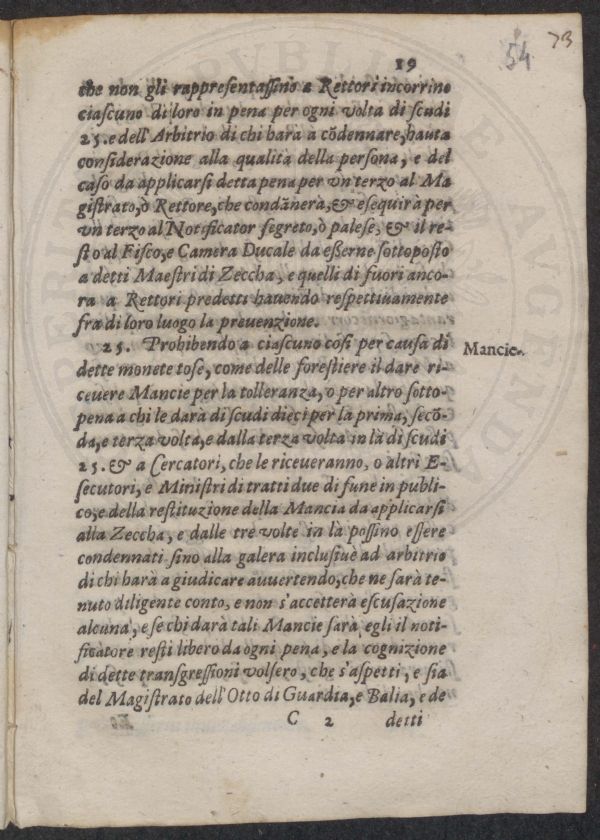 19
54
73
che non gli rappresentassino a Rettori incorrino
ciascuno di loro in pena per ogni volta di scudi
25. e dell'Arbitrio di chi harà a cōdennare, hauta
considerazione alla qualità della persona, e del
caso da applicarsi detta pena per vn terzo al Ma
gistrato, ò Rettore, che condānerà, & esequirà per
vn terzo al Notificator segreto, ò palese, & il re-
sto al Fisco, e Camera Ducale da esserne sottoposto
a detti Maestri di Zeccha, e quelli di fuori anco-
ra a Rettori predetti hauendo respettiuamente
fra di loro luogo la preuenzione.
25. Prohibendo a ciascuno cosi per causa di
Mancie.
dette monete tose, come delle forestiere il dare ri-
ceuere Mancie per la tolleranza, o per altro sotto-
pena a chi le darà di scudi dieci per la prima, secō-
da, e terza volta, e dalla terza volta in là di scudi
25. & a Cercatori, che le riceueranno, o altri E-
secutori, e Ministri di tratti due di fune in publi-
co, e della restituzione della Mancia da applicarsi
alla Zeccha, e dalle tre volte in là possino essere
condennati sino alla galera inclusiuè ad arbitrio
di chi harà a giudicare auuertendo, che ne sarà te-
nuto diligente conto, e non s'accetterà escusazione
alcuna, e se chi darà tali Mancie sarà egli il noti-
ficatore resti libero da ogni pena, e la cognizione
di dette transgressioni volsero, che s'aspetti, e sia
del Magistrato dell'Otto di Guardia, e Balia, e de
C 2 detti